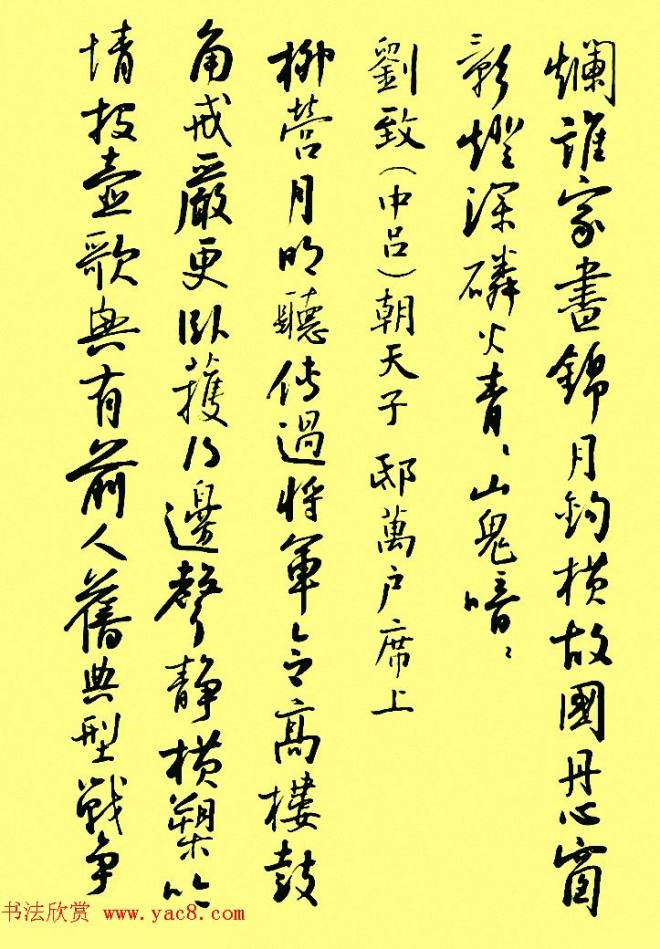 爛誰家晝錦月鈎橫故國丹心窗
影燈深磷火青、山鬼喑、
劉致（中呂）朝天子 邸萬户席上
柳營月明聽傳過將軍令高樓鼓
角戒嚴更臥護得邊聲靜橫槊吟
情投壺歌興有前人舊典型戰爭
书法欣赏 www.yac8.com